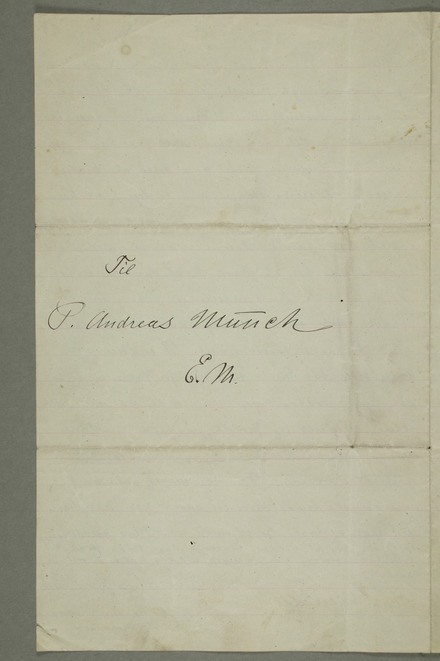 Til
P. Andreas Munch
E. M.